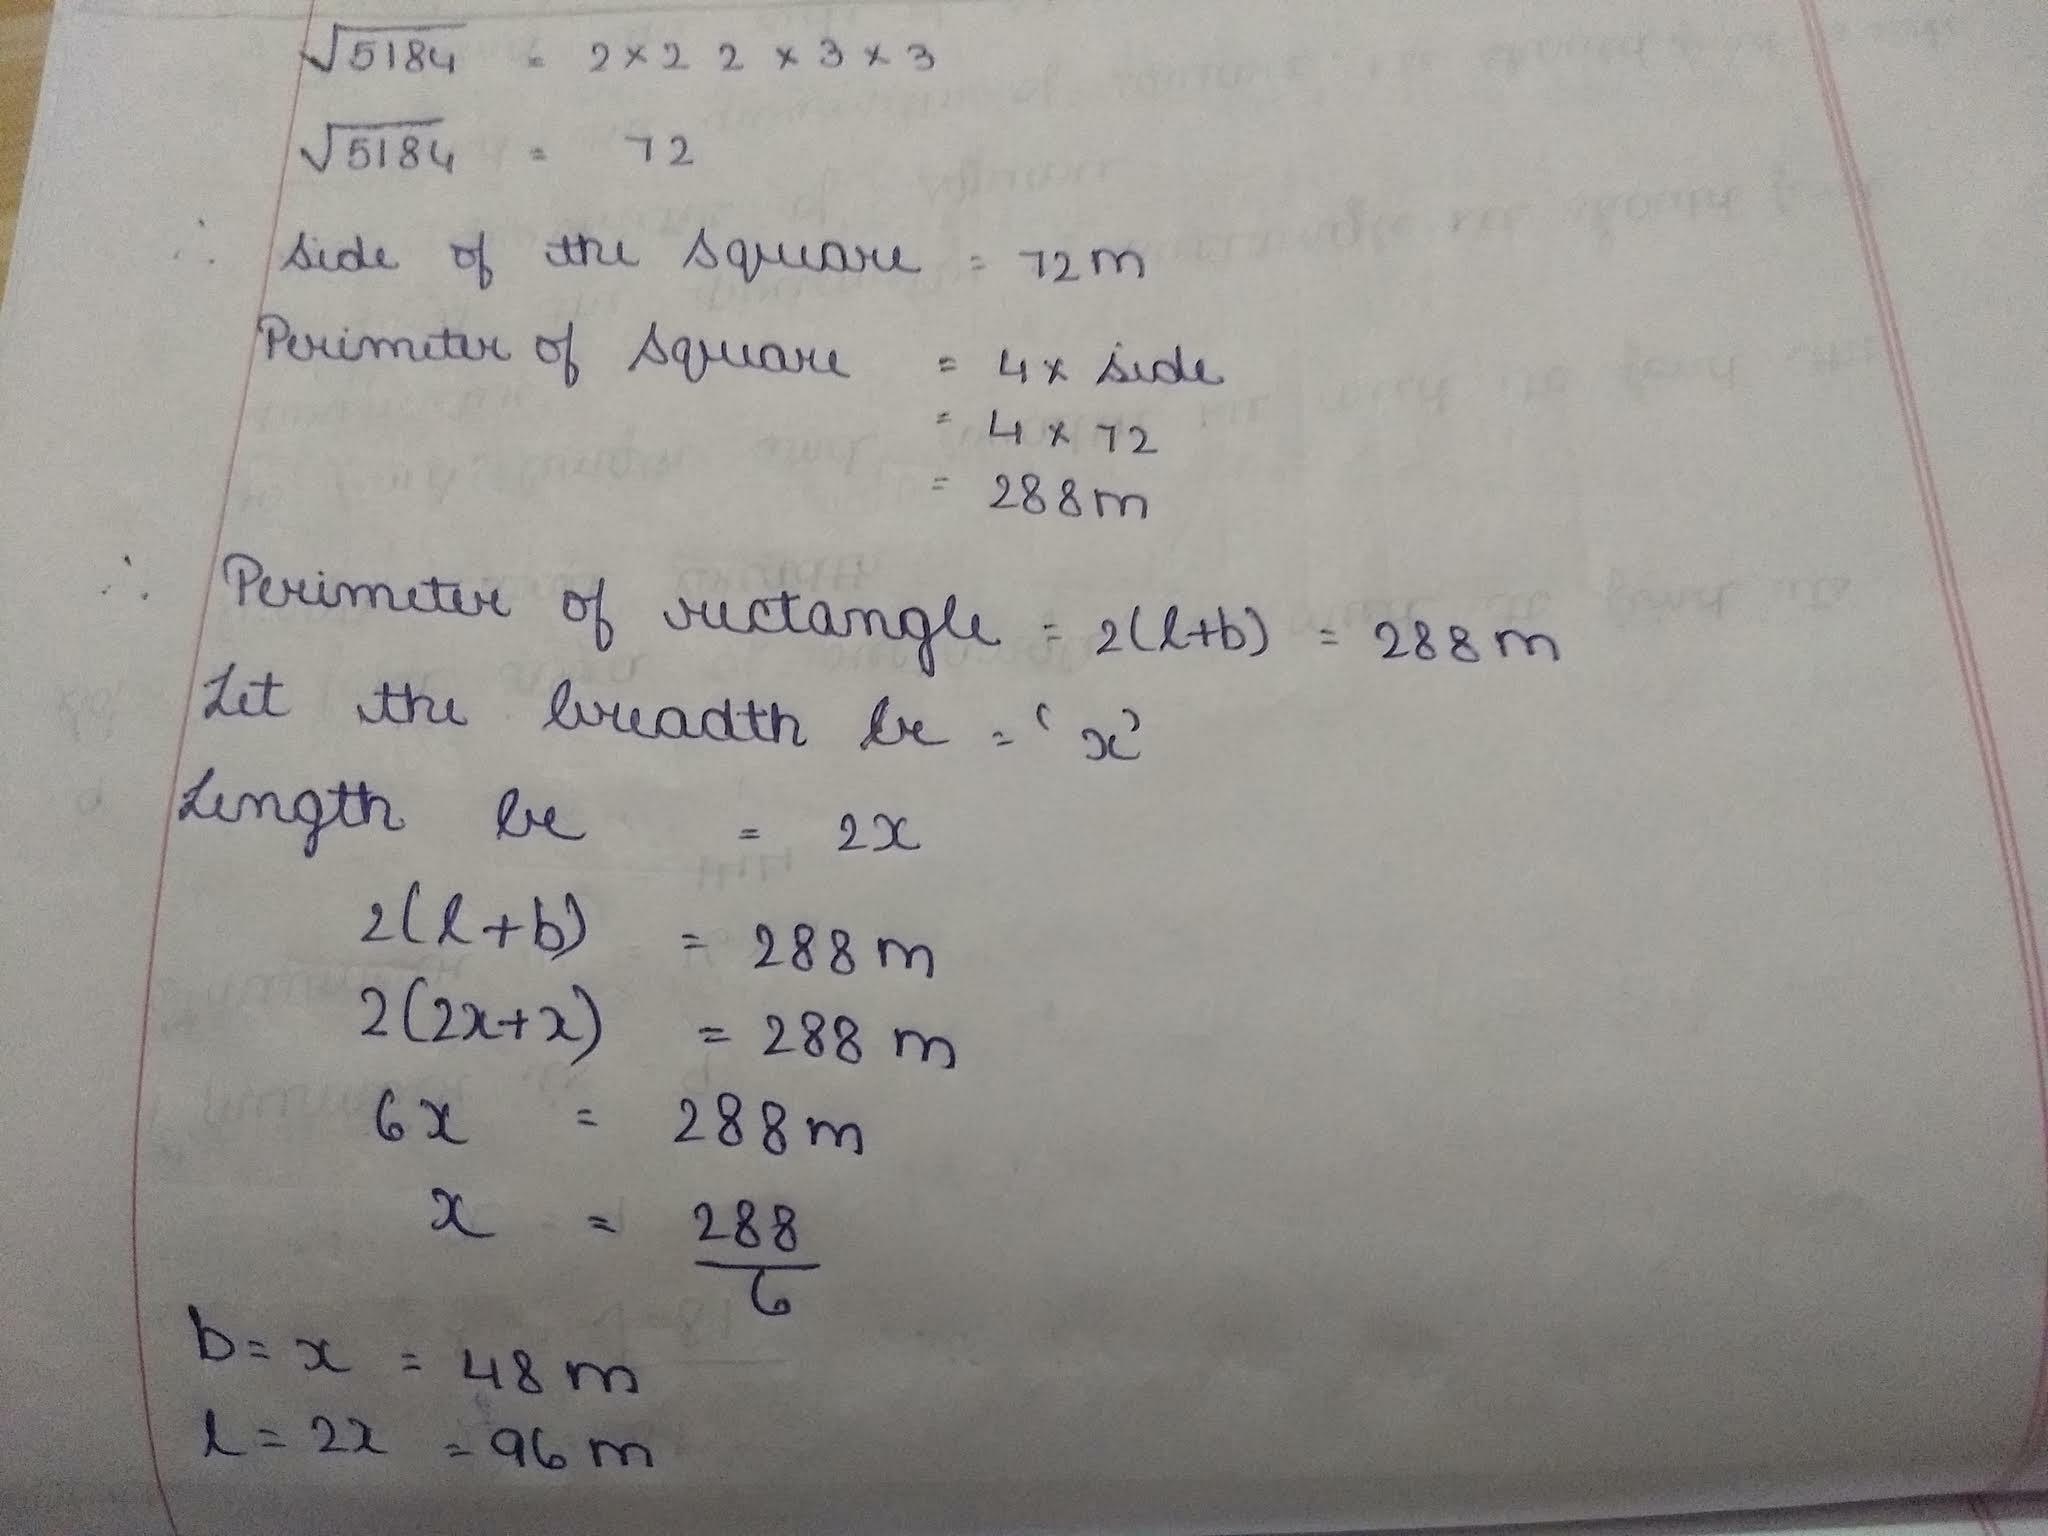 √5184 = 2 × 2 2 × 3 × 3
√5184 = 72
∴ side of the square = 72m
Perimeter of square = 4 × side
= 4 × 72
= 288m
∴ Perimeter of rectangle = 2(l+b) = 288m
Let the breadth be = 'x'
Length be = 2x
2(l+b) = 288m
2(2x+x) = 288 m
6x = 288m
x = 288
6
b = x = 48 m
l = 2x = 96 m